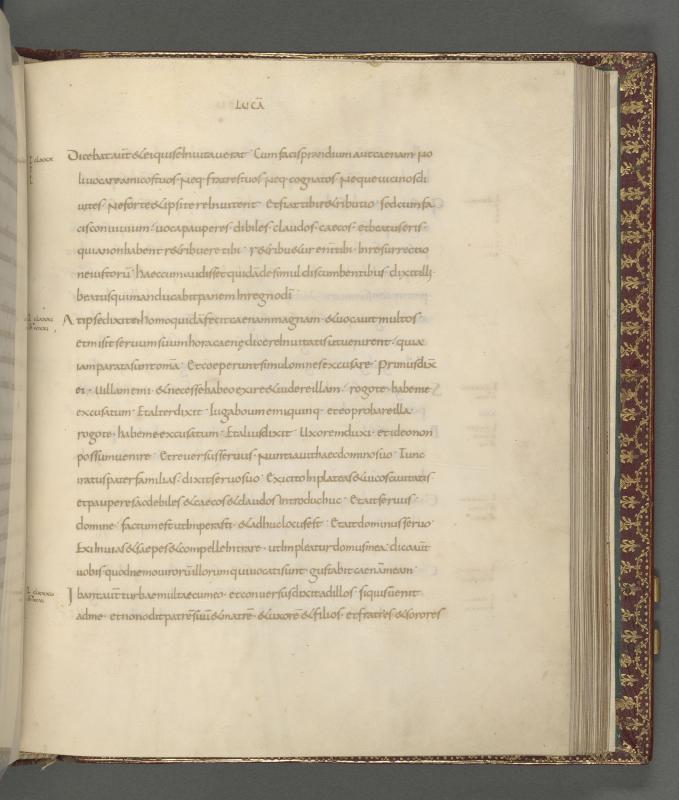 LUCĀ
Dicebat aūt & ei qui se Inuitauerat · Cum facis prandium aut caenam No
li uocare amicos tuos · Neq· fratres tuos Neq· cognatos Neque uicinos di
uites · Ne forte & ipsi te reInuitent · Et fiat tibi r&ributio · sed cum fa
cis conuiuium · uoca pauperes · dibiles · claudos · caecos · et beatus eris ·
quia non habent r&ribuere tibi · r&ribu&ur enī tibi · In resurrectio
ne iustorū · haec cum audiss& quidā de simul discumbentibus · dixit illi ·
beatus qui manducabit panem In regno dī
At ipse dixit ei · homo quidā fecit caenam magnam · & uocauit multos
et misit seruum suum hora caenę dicere Inuitatis ut uenirent · quia
iam parata sunt omā · Et coeperunt simul omnes excusare · Primus dix̄
ei · Uillam emi · & necesse habeo exire & uidere illam · rogo te · habe me
excusatum · Et alter dixit · Iuga boum emi quinq· et eo probare illa ·
rogo te · habe me excusatum · Et alius dixit · Uxorem duxi · et ideo non
possum uenire · Et reuersus seruus · Nuntiauit haec domino suo · Tunc
iratus pater familias · dixit seruo suo · Exi cito In plateas & uicos ciuitatis
et pauperes ac debiles & caecos & claudos introduc huc · Et ait seruus
domine · factum est ut Imperasti · & adhuc locus est · Et ait dominus seruo ·
Exi In uias & saepes & compelle Intrare · ut Impleatur domus mea · dico aūt
uobis · quod nemo uirorū illorum qui uocati sunt · gustabit caenā meam ·
Ibant aūt turbae multae cum eo · et conuersus dixit ad illos · si quis uenit
ad me · et non odit patrē suū & matrē · & uxorē & filios · et fratres & sorores